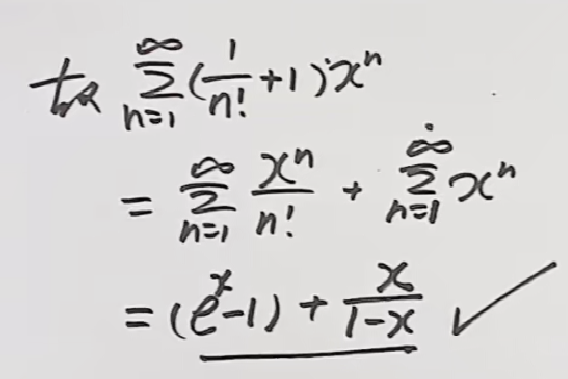 故 ∑_{n=1}^{∞} (1/n! + 1) x^n
= ∑_{n=1}^{∞} x^n/n! + ∑_{n=1}^{∞} x^n
= (e^x - 1) + x/(1-x) ✓